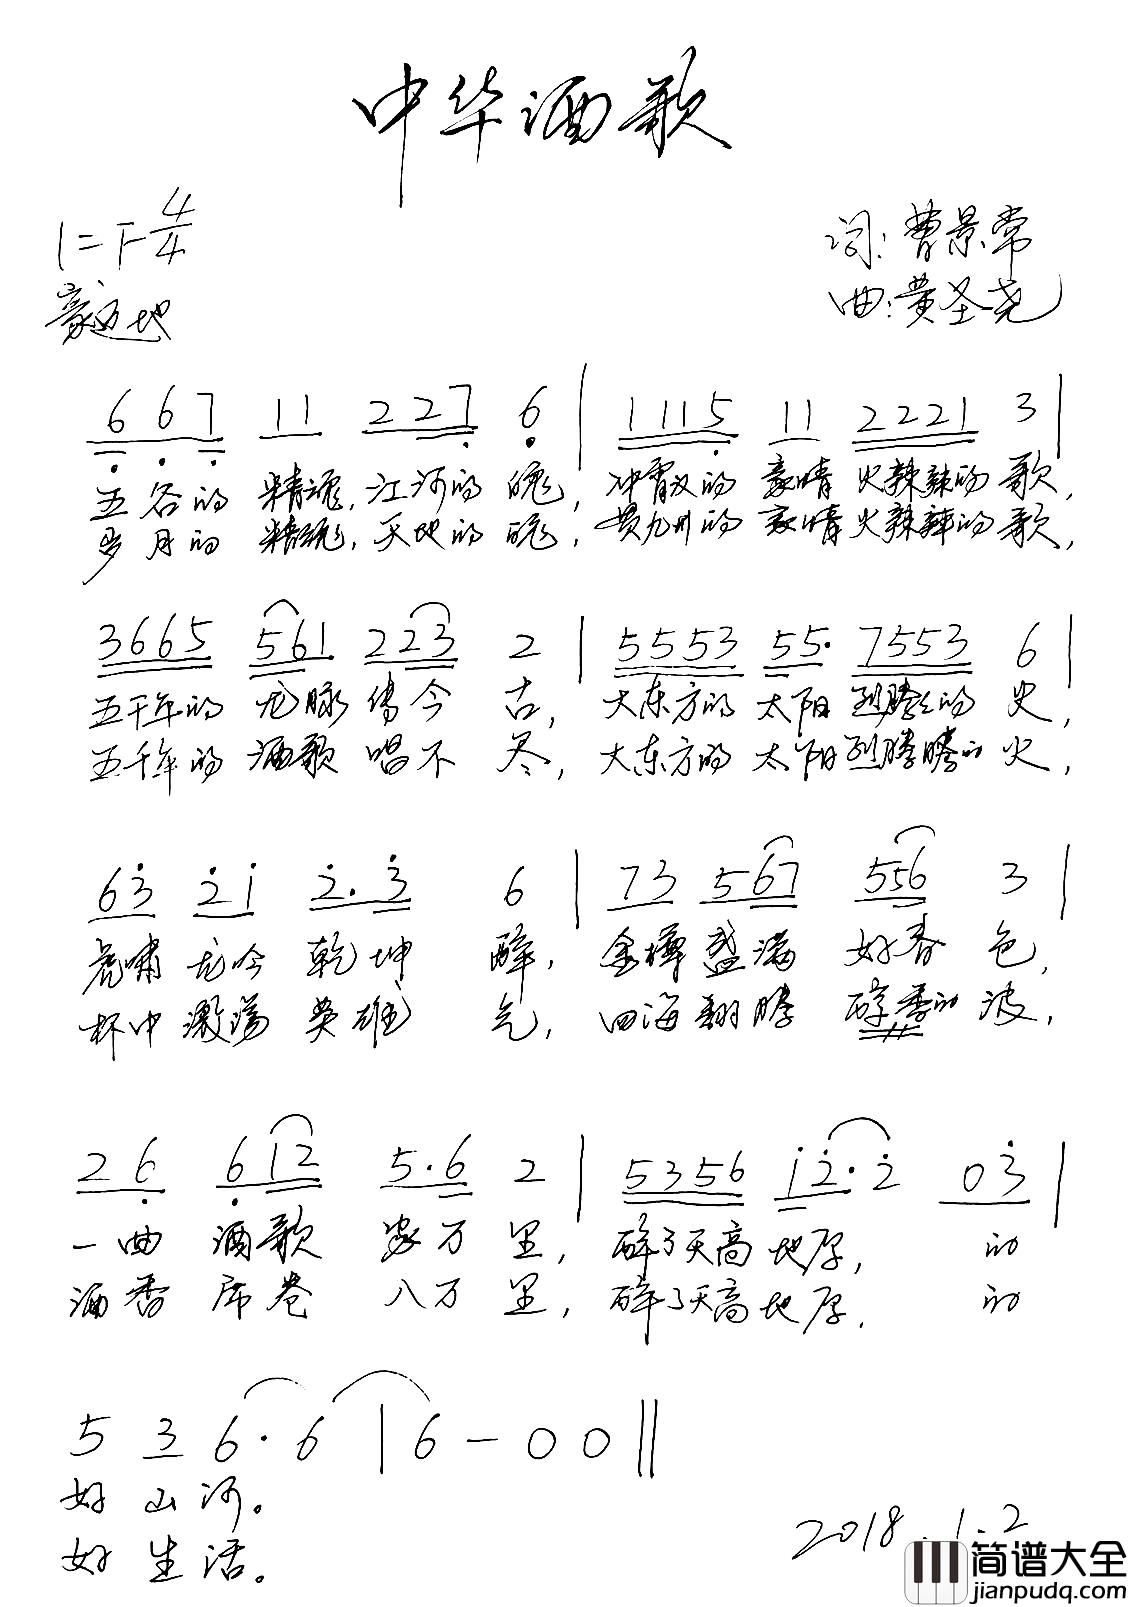 中华酒歌
1=F 4/4
豪迈地
词:曹景常
曲:黄圣尧
6 6 7 11 2 2 7 6 | 1115 11 2221 3 |
五谷的 精魂,江河的魄, 冲霄汉的 豪情 火辣辣的 歌,
岁月的 精魂,天地的魄, 贯九州的 豪情 火辣辣的 歌,
3665 561 223 2 | 5553 55· 7553 6 |
五千年的 龙脉 传今 古, 大东方的 太阳 烈腾腾的 史,
五千年的 酒歌 唱不 尽, 大东方的 太阳 烈腾腾的 火,
63 21 2·3 6 | 73 567 556 3 |
虎啸 龙吟 乾坤 醉, 金樽 盛满 好春 色,
杯中 激荡 英雄 气, 四海 翻腾 醇香的 波,
26 612 5·6 2 | 5356 12·2 03 |
一曲 酒歌 家万 里, 醉了天高 地厚, 的
酒香 席卷 八万 里, 醉了天高 地厚, 的
5 3 6·6 | 6 - 0 0 ‖
好山河。
好生活。
2018.1.2
简谱大全
jianpudq.com